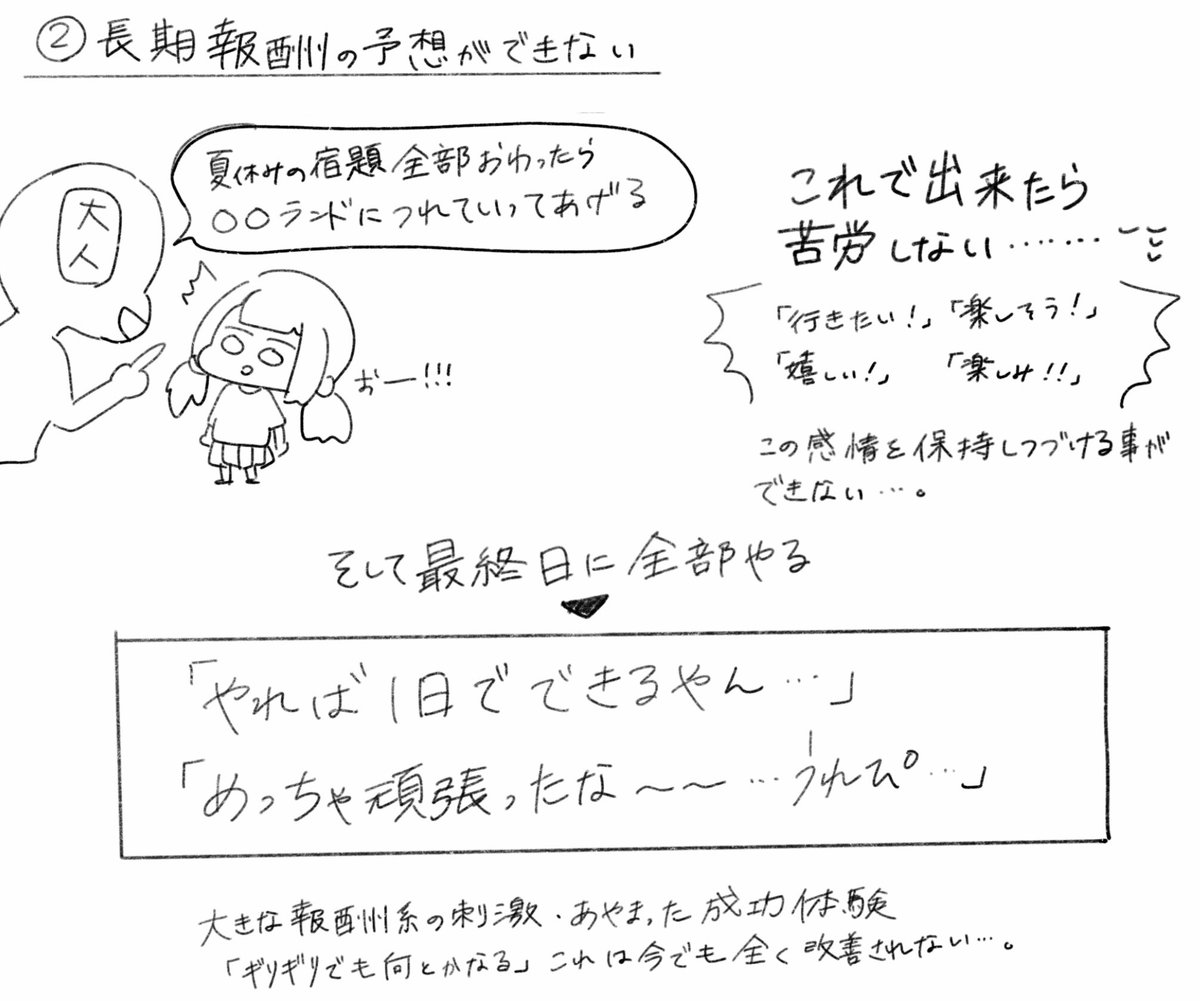 ② 長期報酬の予想ができない
夏休みの宿題全部おわったら
○○ランドにつれていってあげる
大人
おー!!!
これで出来たら
苦労しない……
「行きたい!」「楽しそう!」
「嬉しい!」 「楽しみ!!」
この感情を保持しつづける事が
できない…。
そして最終日に全部やる
「やれば1日でできるやん…」
「めっちゃ頑張ったな〜〜…うれぴ…」
大きな報酬系の刺激・あやまった成功体験
「ギリギリでも何とかなる」これは今でも全く改善されない…。